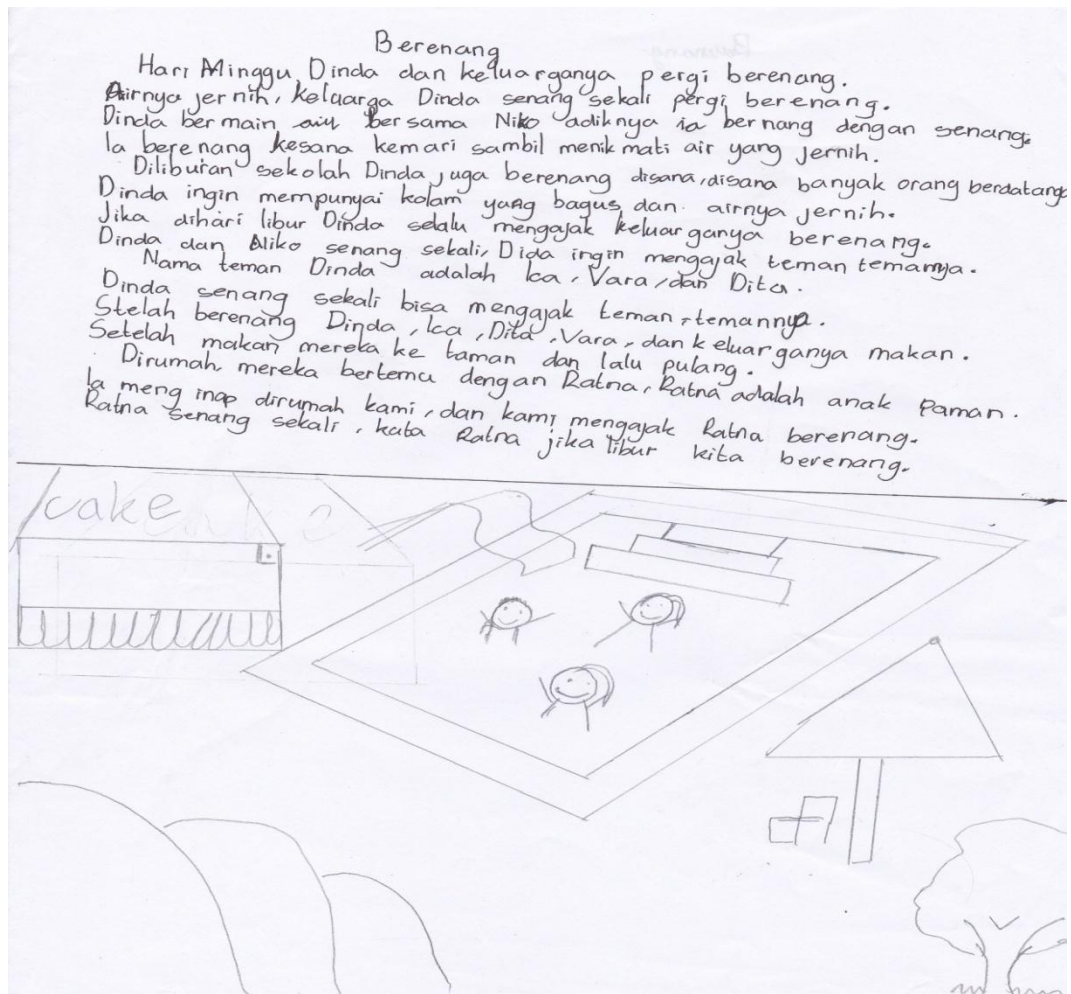 Berenang
Hari Minggu Dinda dan keluarganya pergi berenang.
Airnya jernih, keluarga Dinda senang sekali pergi berenang.
Dinda bermain air bersama Niko adiknya ia bernang dengan senang.
Ia berenang kesana kemari sambil menikmati air yang jernih.
Diliburan sekolah Dinda juga berenang disana, disana banyak orang berdatang
Dinda ingin mempunyai kolam yang bagus dan airnya jernih.
Jika dihari libur Dinda selalu mengajak keluarganya berenang.
Dinda dan Niko senang sekali, Dida ingin mengajak teman temannya.
Nama teman Dinda adalah Ica, Vara, dan Dita.
Dinda senang sekali bisa mengajak teman-temannya.
Stelah berenang Dinda, Ica, Dita, Vara, dan keluarganya makan.
Setelah makan mereka ke taman dan lalu pulang.
Dirumah mereka bertemu dengan Ratna, Ratna adalah anak Paman.
Ia menginap dirumah kami, dan kami mengajak Ratna berenang.
Ratna senang sekali, kata Ratna jika libur kita berenang.
cake